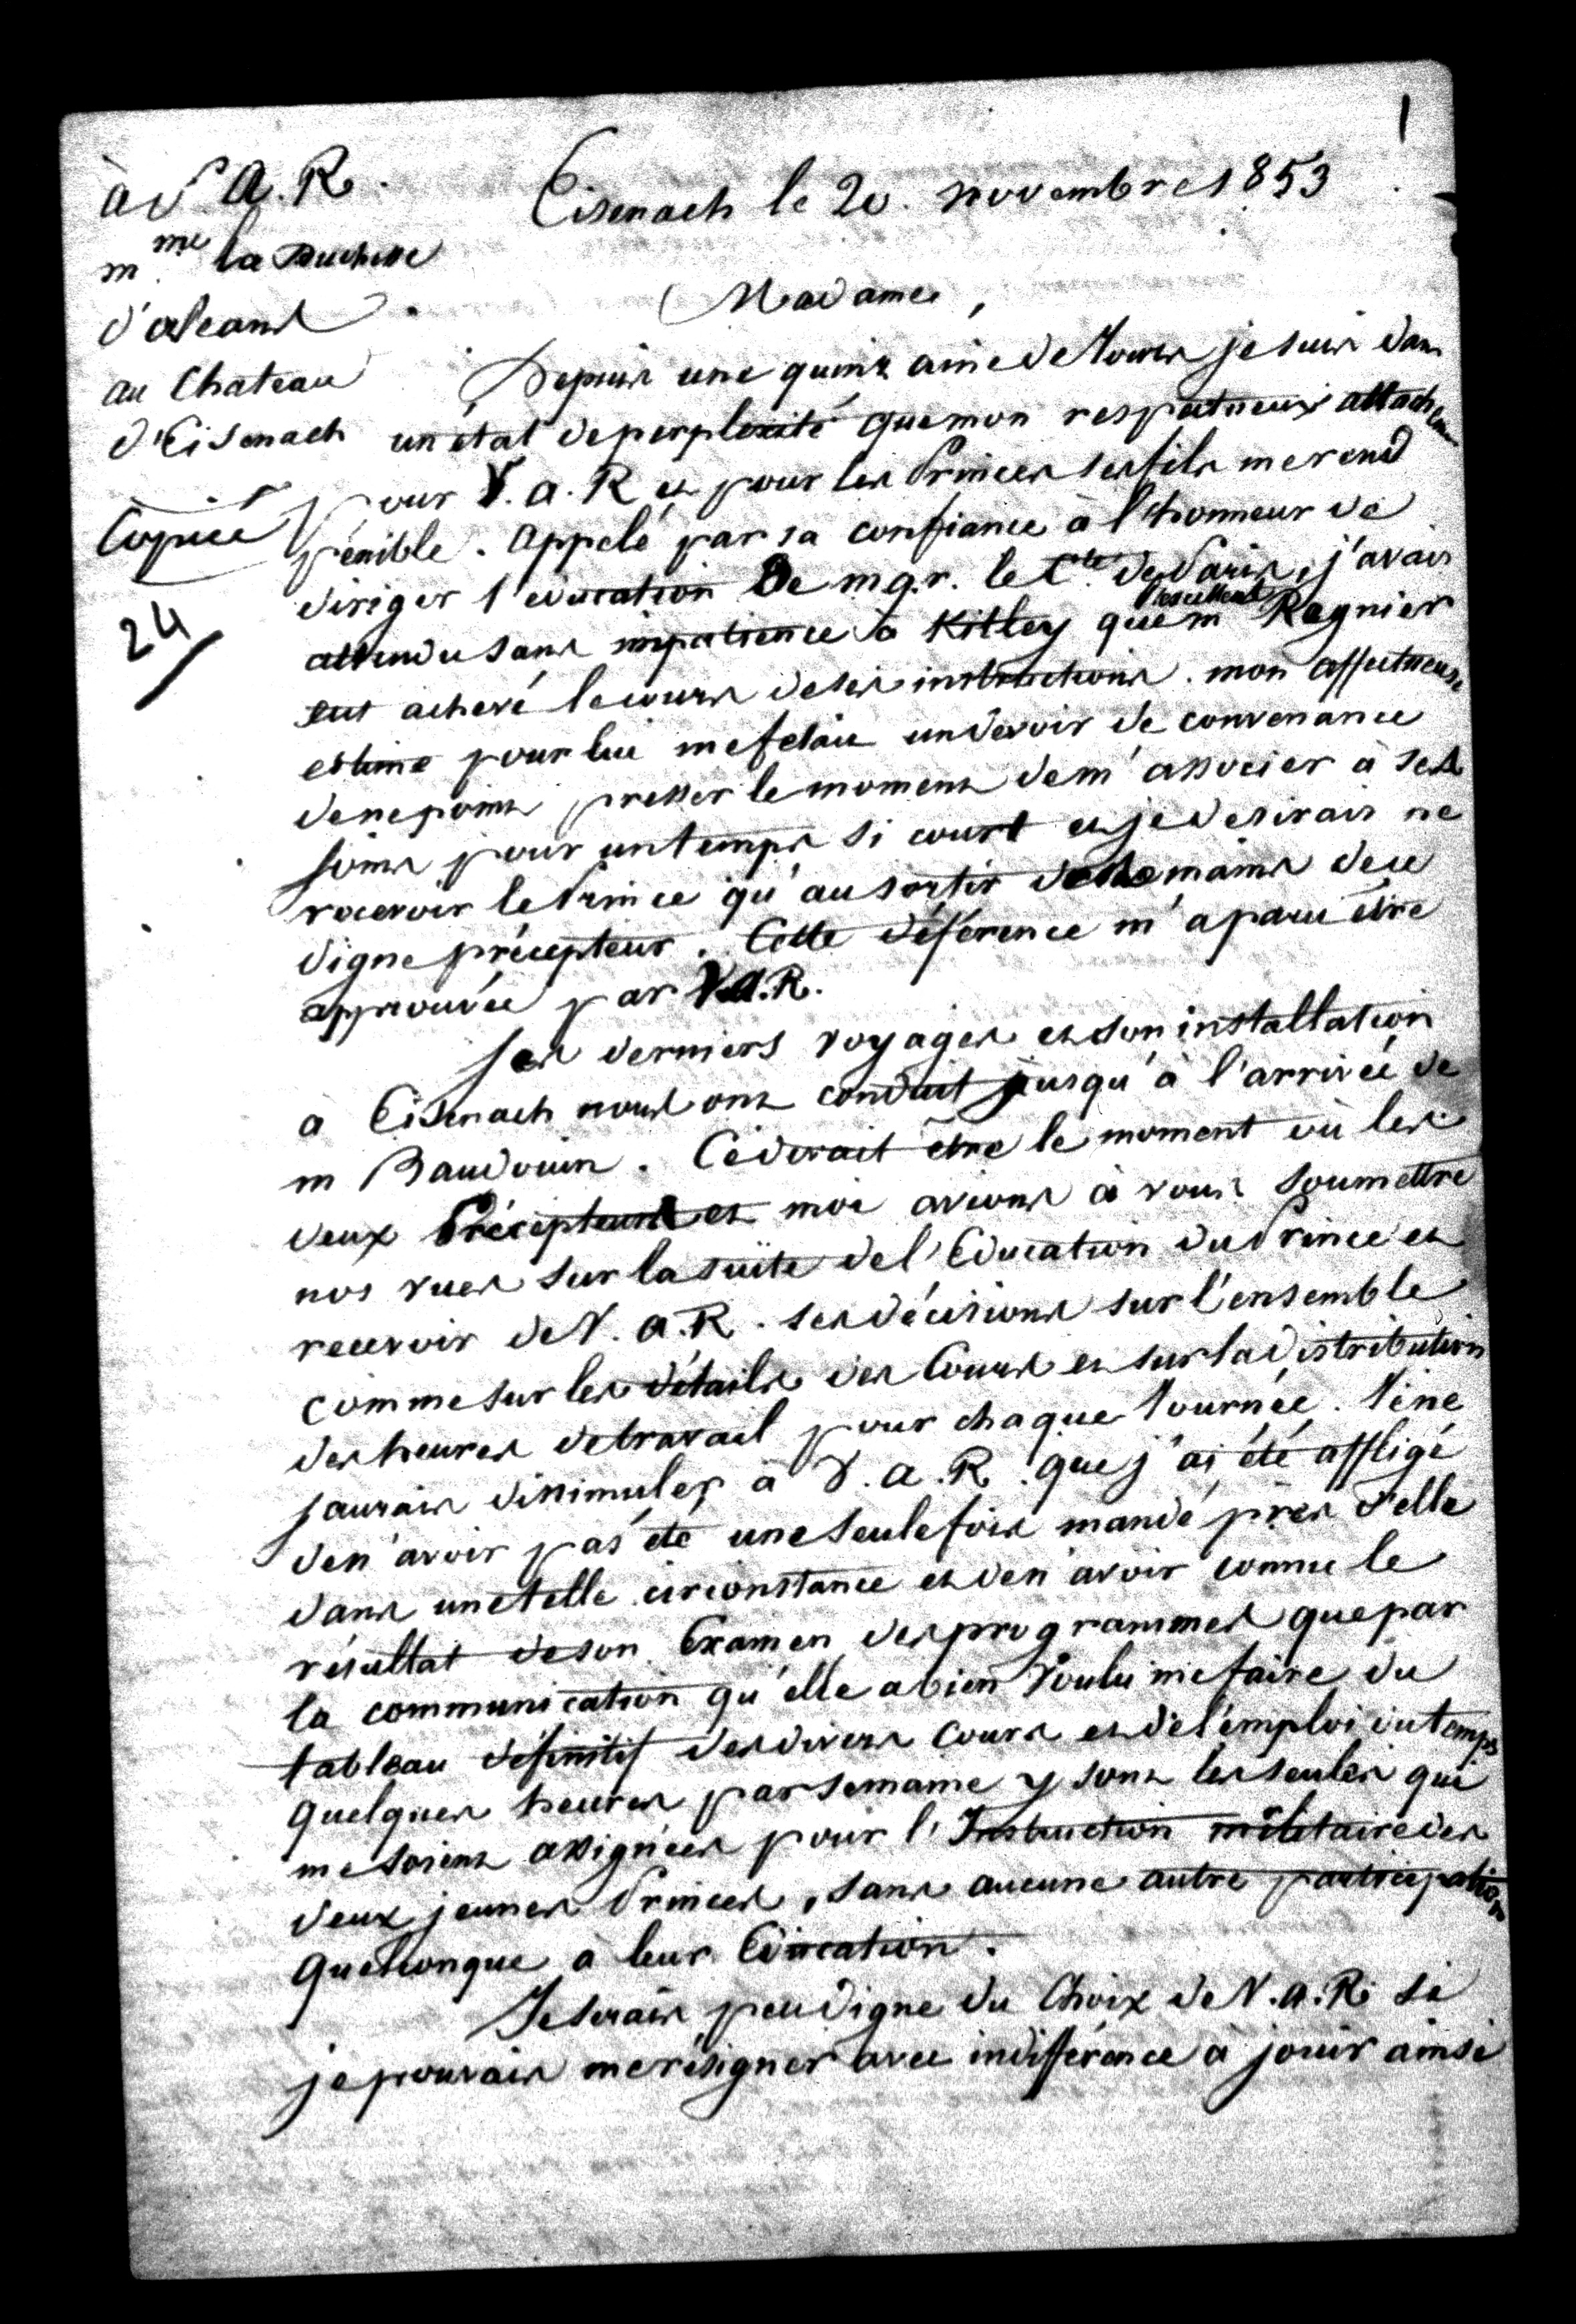 1
à S A. R.
mme la Duchesse
d'orleans
au Chateau
d'Eisenach
Copiée
24
Eisenach le 20. novembre 1853
Madame,
Depuis une quinzaine de Jours je suis dans
un état de perplexité que mon respectueux attachem
pour V. a. R et pour les Princes ses fils me rend
pénible. Appelé par sa confiance à l'honneur de
diriger l'education De mgr. le Cte de Paris, j'avais
attendu sans impatience à Kitley que m l'excellent Regnier
eut achevé le cours de ses instructions. mon affectueuse
estime pour lui me fesait un devoir de convenance
de ne point presser le moment de m'associer à ses
soins pour un temps si court et je desirais ne
recevoir le Prince qu'au sortir des mains de ce
digne précepteur. Cette déférence m'a paru être
approuvée par V.A.R.
Ses derniers voyages et son installation
a Eisenach nous ont conduit jusqu'à l'arrivée de
m Baudouin. Ce devait être le moment où les
deux Précepteurs et moi avions à vous soumettre
nos vues sur la suite de l'Education du Prince et
recevoir de V. a. R. ses décisions sur l'ensemble
comme sur les détails des Cours et sur la distribution
des heures de travail pour chaque Journée. Je ne
saurais dissimuler à V. a. R. que j'ai été affligé
de n'avoir pas été une seule fois mandé près d'elle
dans une telle circonstance et de n'avoir connu le
résultat de son Examen des programmes que par
la communication qu'elle a bien Voulu me faire du
tableau définitif des divers cours et de l'emploi du temps
Quelques heures par semaine y sont les seules qui
me soient assignées pour l'Instruction militaire des
deux jeunes Princes, sans aucune autre participation
Quelconque à leur Education.
Je serais peu digne du Choix de V. a. R. si
je pouvais me résigner avec indifférence à jouir ainsi